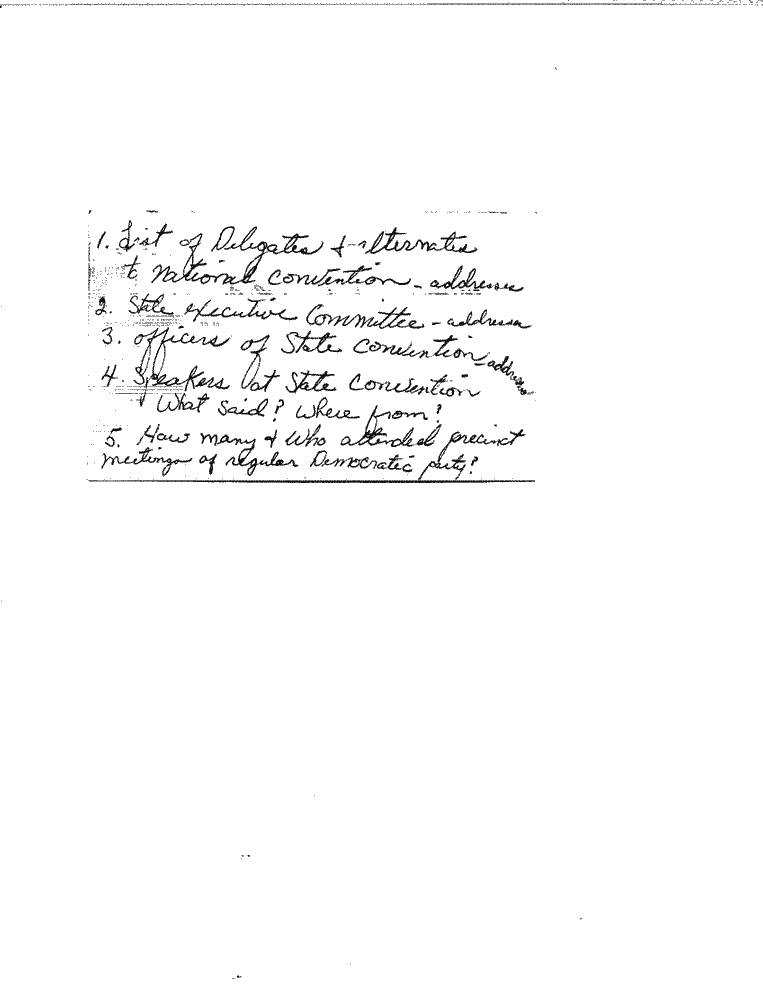 1. List of Delegates & alternates
to National Convention - addresses
2. State executive Committee - addresses
3. officers of State Convention - addresses
4. Speakers at State Convention
& What said? Where from?
5. How many & Who attended precinct
meetings of regular Democratic party?